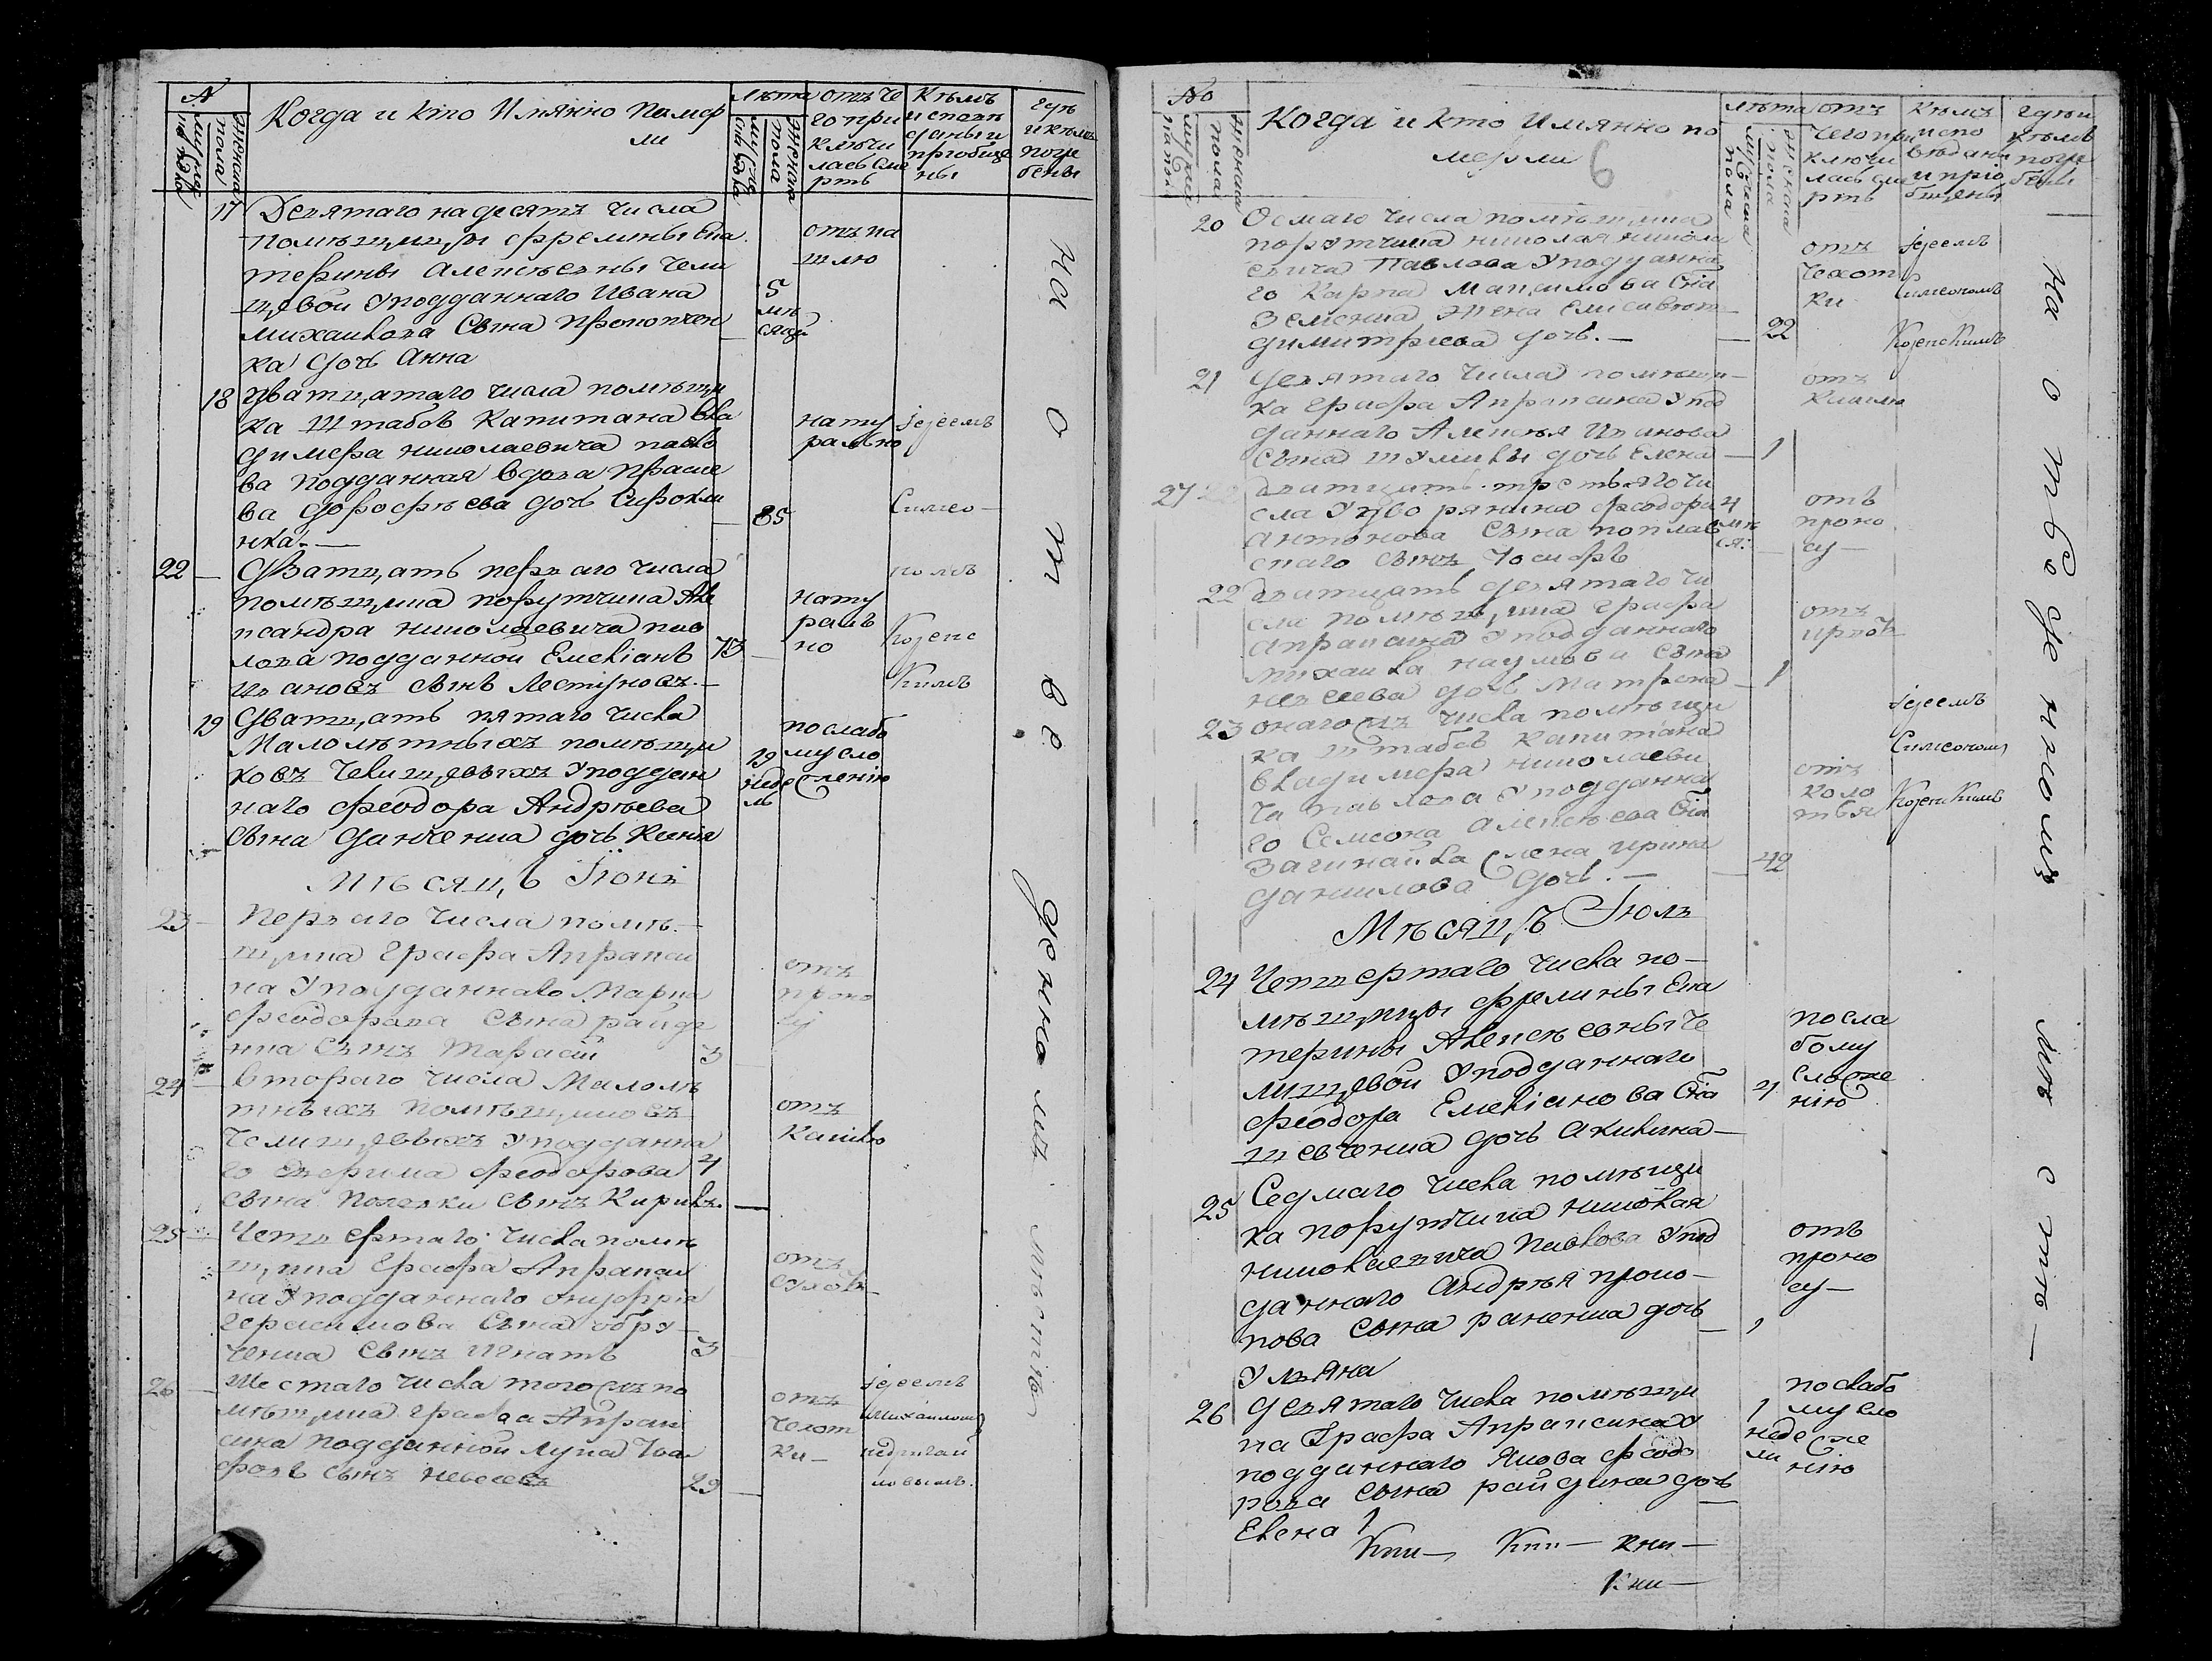 №
мужеска пола
женска пола
Когда и кто Имянно Помер
ли
лѣта
мужеска пола
женска пола
отъ че
го при
ключи
лась сме
рть
Кѣмъ
исповѣ
даны и
приобще
ны
гдѣ
и кѣмъ
погре
бены
17 Девятаго надесять числа
помѣщицы фрелины Ека
терины Алексѣевны Чели
щевой у подданнаго Ивана
Михайлова Сына Прокопчен
ка дочь Анна
5
мѣ
сяцей
отъ ка
шлю
18 Дватцатаго числа помѣщи
ка Штабсъ Капитана Вла
димера Николаевича Павло
ва подданная вдова Праско
ва Дорофѣева дочь
нка.—
85
нату
рально
Іереемъ
Симео
номъ
Козенс
кимъ
22 — Дватцать перваго числа
помѣщика порутчика Але
ксандра Николаевича Пав
лова подданной Емелiанъ
Ивановъ сынъ Лестуновъ.—
73
нату
раль
но
19 Дватцать пятаго числа
Малолѣтныхъ помѣщи
ковъ Челищевыхъ у поддан
наго Феодора Андрѣева
Сына Данченка дочь Ксенія
19
неде
ль
по слабо
му сло
женію
Мѣсяцъ Іюнь
23 — Перваго числа помѣ—
щика Графа Апракси
на у подданнаго Марка
Феодорова Сына Райде
нка Сынъ Тарасій
3
отъ
проно
су
24 — втораго числа Малолѣ
тныхъ помѣщиковъ
Челищевыхъ у подданна
го Ефрима Феодорова
сына сынъ Кирилъ.
4
отъ
Кашлю
25 — Четвертаго числа помѣ
щика Графа Апракси
на у подданнаго Онуфрія
Герасимова Сына
ченка Сынъ Игнатъ
3
отъ
26 — Шестаго числа того жъ по
мѣщика графа Апрак
сина подданной Лука
сынъ
29
отъ
чехот
ки —
Іереемъ
Михаиломъ
на отведенномъ мѣстѣ
№
мужеска пола
женска пола
Когда и кто Имянно по
мерли
6
лѣта
мужеска пола
женска пола
отъ
чего при
ключи
лась сме
рть
Кѣмъ
испо
вѣданы
и прiо
бщены
гдѣ и
кѣмъ
погре
бены
20 Осмаго числа помѣщика
порутчика Николая Никола
евича Павлова у подданна
го Карпа Максимова Сна
Земленка жена Елисавет
Димитріева дочь.—
— 22
отъ
чехот
ки
Іереемъ
Симеономъ
Козенскимъ
21 Девятаго числа помѣщи—
ка графа Апраксина у под
даннаго Алексѣя Иванова
Сына дочь Елена —
1
отъ
Кашлю
27 Дватцать третьяго чи
сла у дворянина Феодора
Антонова Сына Поплав
скаго Сынъ Іосифъ
4
мѣ
ся:
отъ
проно
су —
22 Дватцать девятаго чи
сла помѣщика графа
Апраксина у подданнаго
Михаила Наумова Сына
дочь Матрона —
1
отъ
23 онаго жъ числа помѣщи
ка штабсъ капитана
Владимера Николаеви
ча Павлова у подданна
го Семсона Алексѣева Сна
Загинайла жена Ирина
Данилова дочь.—
— 42
отъ
коло
тья
Іереемъ
Симеономъ
Козенскимъ
Мѣсяцъ Іюль
24 Четвертаго числа по—
мѣщицы Фрелины Ека
терины Алексѣевны Че
лищевой у подданнаго
Феодора Емеліанова Сна
Шевченка дочь Акилина —
4
по сла
бому
сложе
нію
25 Седмаго числа помѣщи
ка порутчика Николая
Николаевича Павлова у под
даннаго Андрѣя Проко—
пова Сына дочь
Ульяна
— 1
отъ
проно
су —
26 Девятаго числа помѣщи
ка Графа Апраксина у
подданнаго Якова Феодо
рова Сына Райдинка дочь
Елена
1
неде
ли
по слабо
му сло
же
нію
на отведенномъ мѣстѣ —